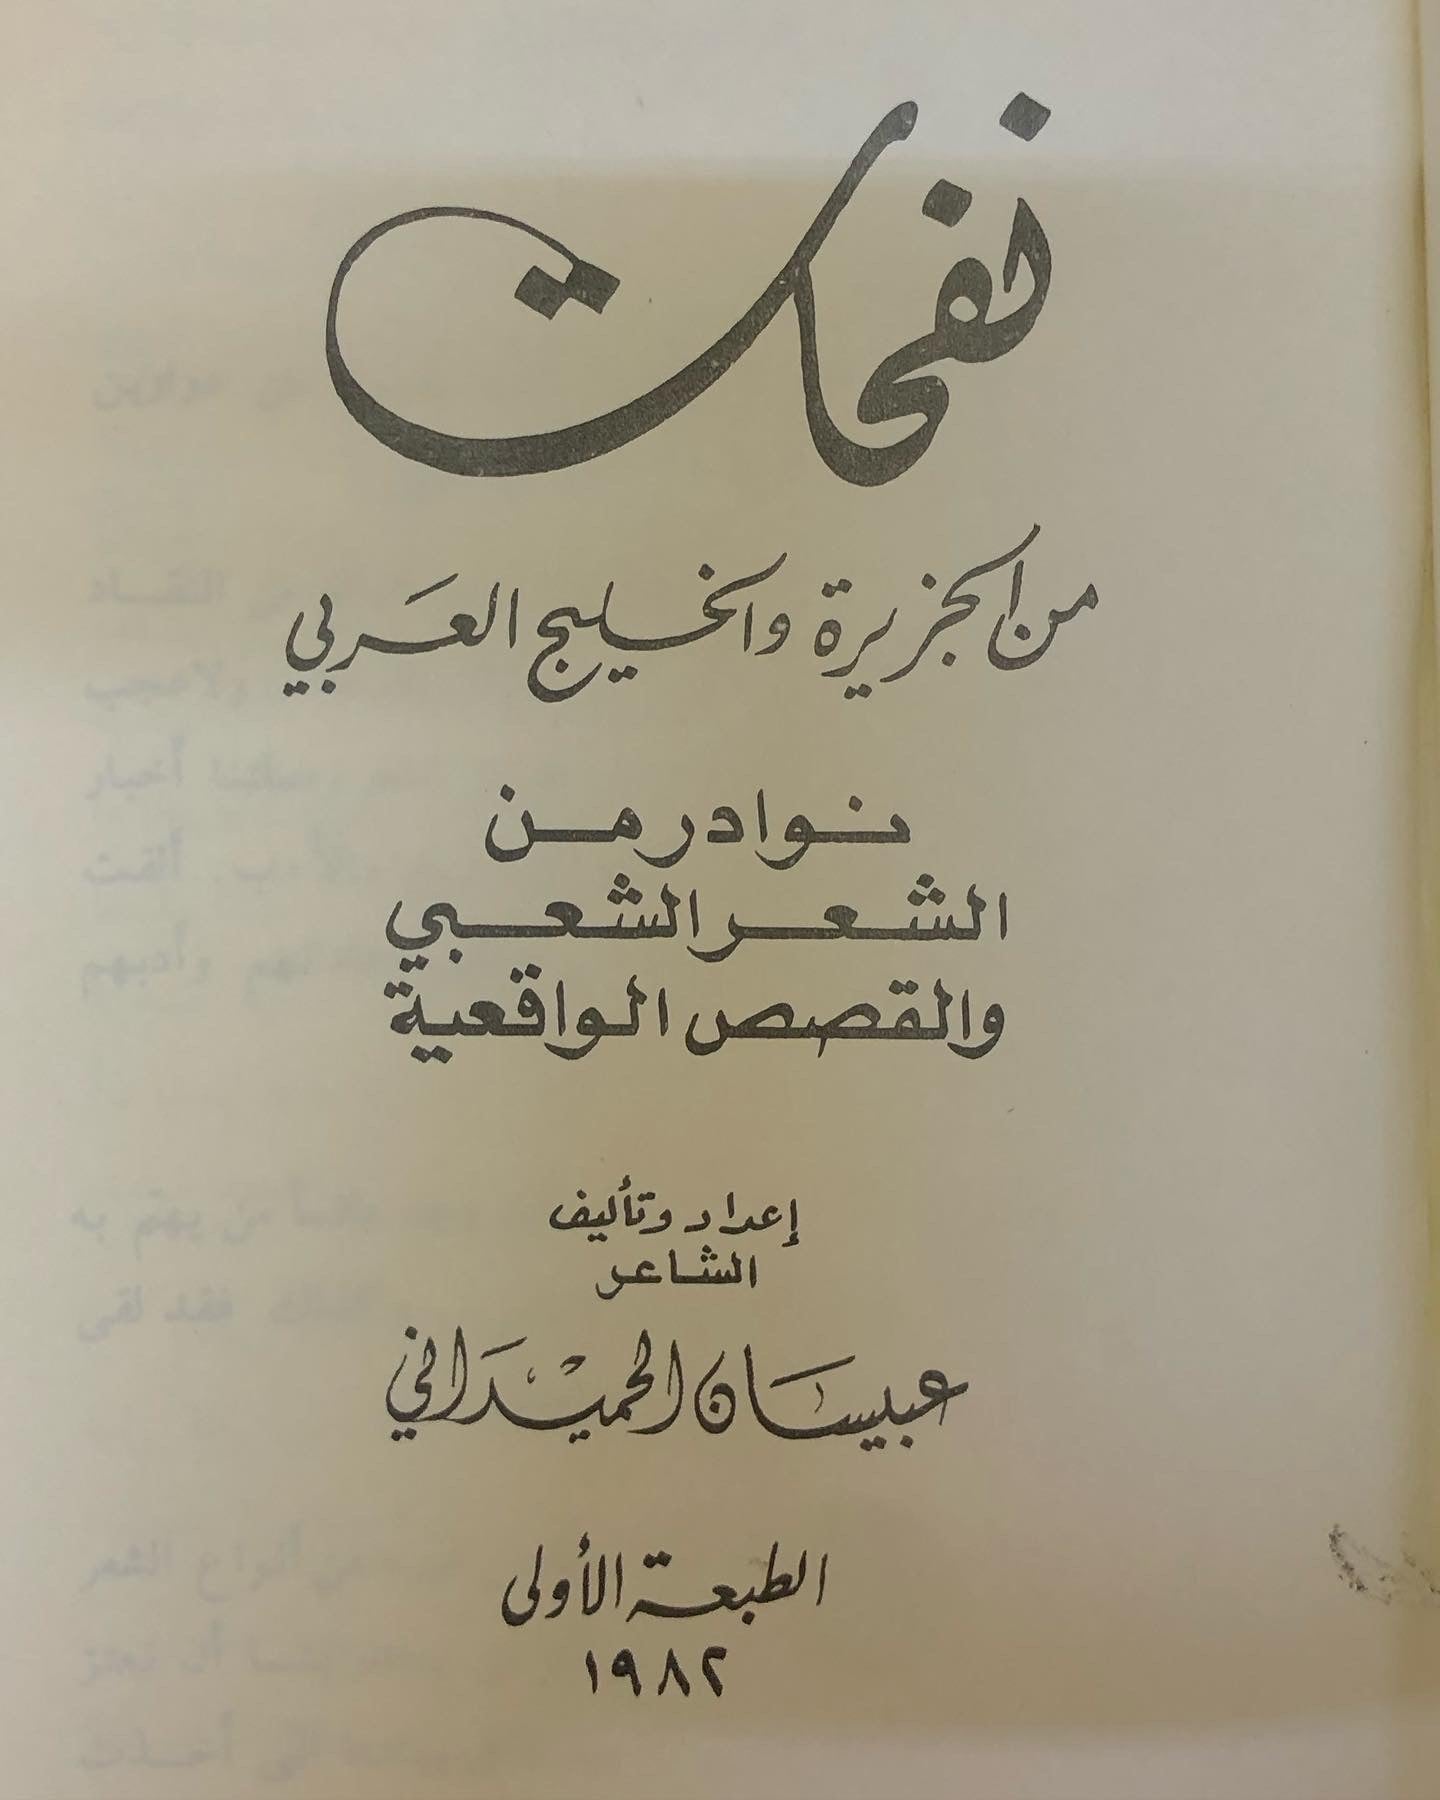 نفحات
من الجزيرة والخليج العربي
نوادر من
الشعر الشعبي
والقصص الواقعية
إعداد وتأليف
الشاعر
عبيسان الحميداني
الطبعة الأولى
١٩٨٢